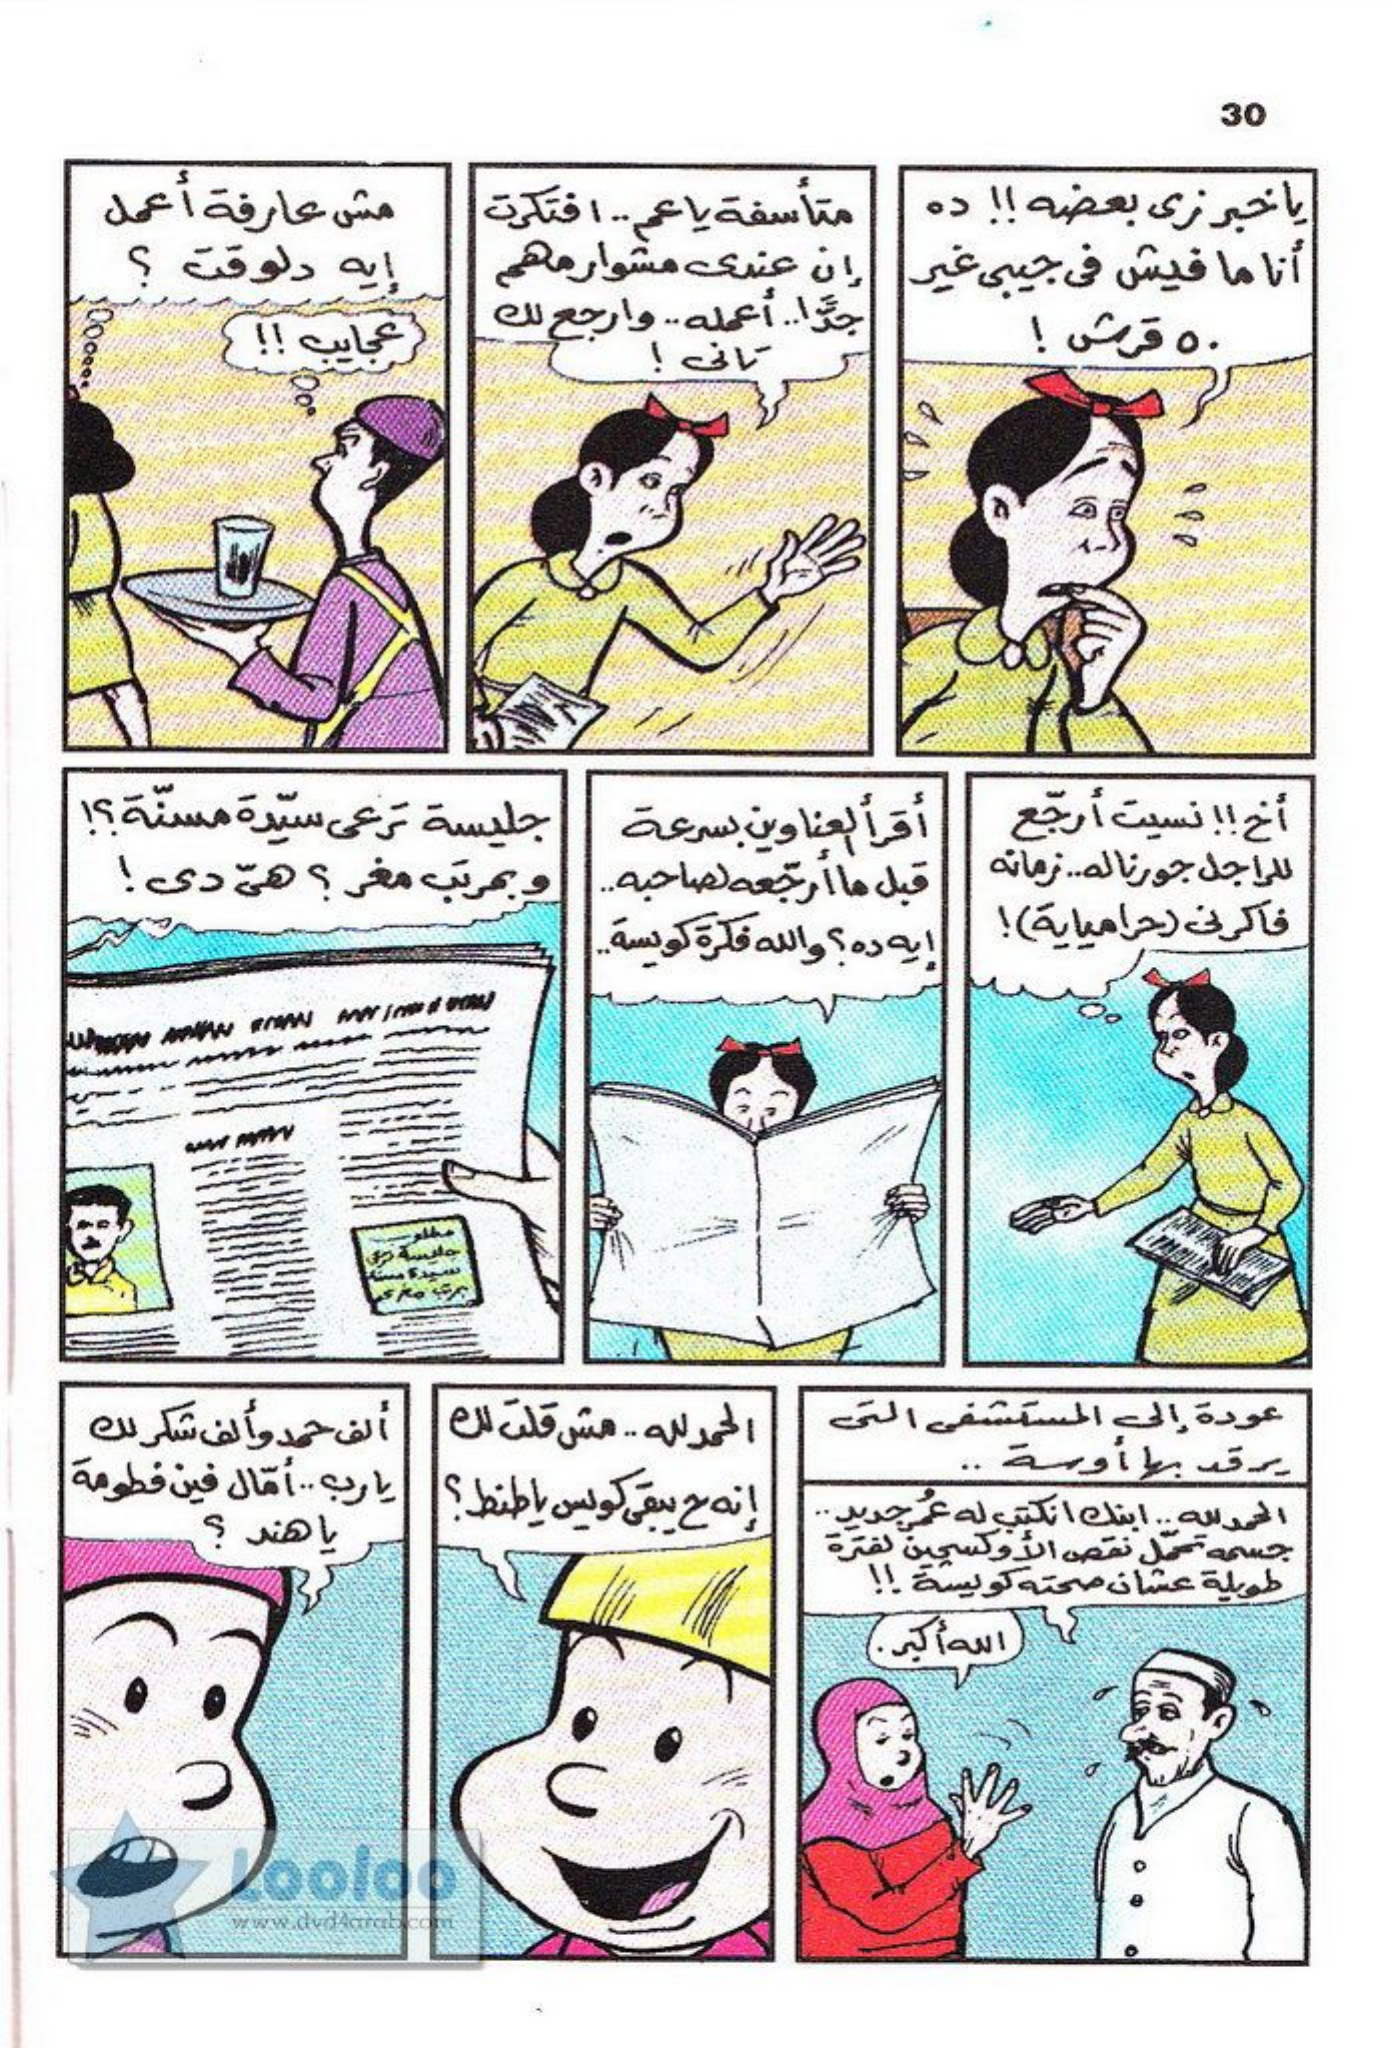 30
يا خبر زى بعضه!! ده
أنا ما فيش فى جيبى غير
٥٠ قرش!
متأسفة يا عم.. افتكرت
إن عندى مشوار مهم
جدًّا.. أعمله.. وارجع لك
تانى!
مش عارفة أعمل
إيه دلوقت؟
عجايب!!
أخ!! نسيت أرجّع
للراجل جورناله.. زمانه
فاكرنى (حرامياية)!
أقرأ العناوين بسرعة
قبل ما أرجّعه لصاحبه..
إيه ده؟ والله فكرة كويسة..
جليسة ترعى سيّدة مسنّة؟!
وبمرتب مغر؟ هىّ دى!
مطلوب
جليسة ترعى
سيدة مسنة
عودة إلى المستشفى التى
يرقد بها أوسة..
الحمد لله.. ابنك انكتب له عُمر جديد..
جسمه تحمّل نقص الأوكسچين لفترة
طويلة عشان صحته كويسة!!
الله أكبر.
الحمد لله.. مش قلت لك
إنه ح يبقى كويس يا طنط؟
ألف حمد وألف شكر لك
يا رب.. أمّال فين فطومة
يا هند؟
Looloo
www.dvd4arab.com